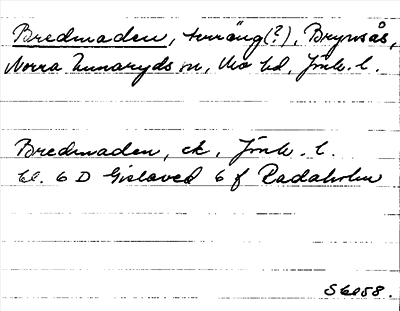 Bredmaden, terräng(?), Brynsås,
Norra Unnaryds sn, Mo hd, Jönk. l.
Bredmaden, ek, Jönk. l.
bl. 6 D Gislaved 6 f Radaholm